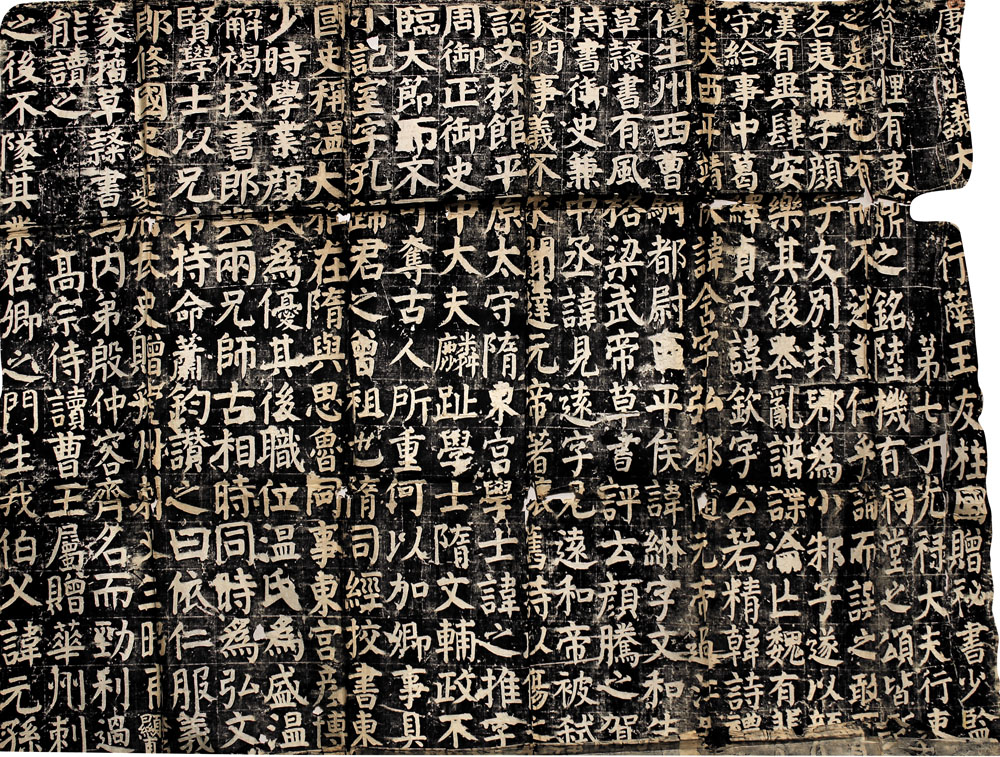 唐故通議大 行薛王友柱國贈秘書少監
第七子光祿大夫行吏
孔悝有夷鼎之銘陸機有祠堂之頌皆
之是証已有而不述豈仁乎論而誤之敢
名夷甫字顏子友別封郳爲小邾子遂以顏
漢有異肆安樂其後喪亂譜諜淪亡魏有斐
守給事中葛繹貞子諱欽字公若精韓詩禮
大夫西平靖侯諱含字弘都隨元帝過江
傳生州西曹嗣都尉西平侯諱綝字文和生
草隸書有風格梁武帝草書評云顏騰之賀
持書御史兼中丞諱見遠字見遠和帝被弒
家門事義不求聞達元帝著懷舊詩以傷
詔文林館平原太守隋東宮學士諱之推字
周御正御史中大夫麟趾學士隋文輔政不
臨大節而不可奪古人所重何以加卿事具
小記室字孔歸君之曾祖也隋司經校書東
國史稱溫大雅在隋與思魯同事東宮彥博
少時學業顏氏爲優其後職位溫氏爲盛溫
解褐校書郎與兩兄師古相時同時爲弘文
賢學士以兄弟持命蕭鈞讃之曰依仁服義
郎修國史府長史贈虢州刺史三昭甫顯甫
篆籀草隸書与內弟殷仲容齊名而勁利過
能讀之 高宗侍讀曹王屬贈華州刺
之後不隊其業在卿之門生我伯父諱元孫